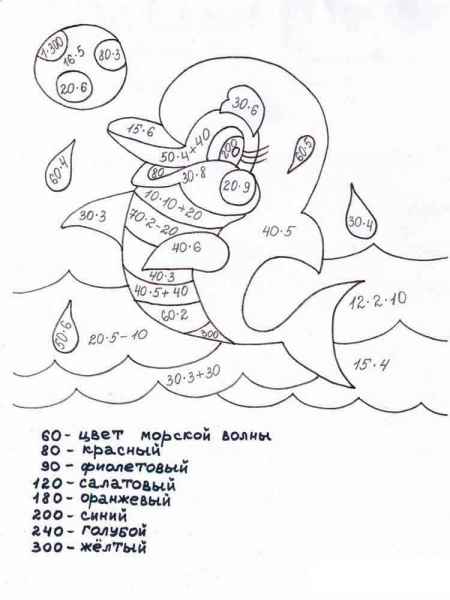 1·300
16·5
80·3
20·6
15·6
30·6
50·4+40
200
60·5
60·4
80
30·8
20·9
10·10+20
30·3
70·2-20
30·4
40·5
40·6
40·3
40·5+40
12·2·10
60·2
300
50·6
20·5-10
15·4
30·3+30
60- цвет морской волны
80- красный
90- фиолетовый
120- салатовый
180- оранжевый
200- синий
240- голубой
300- жёлтый